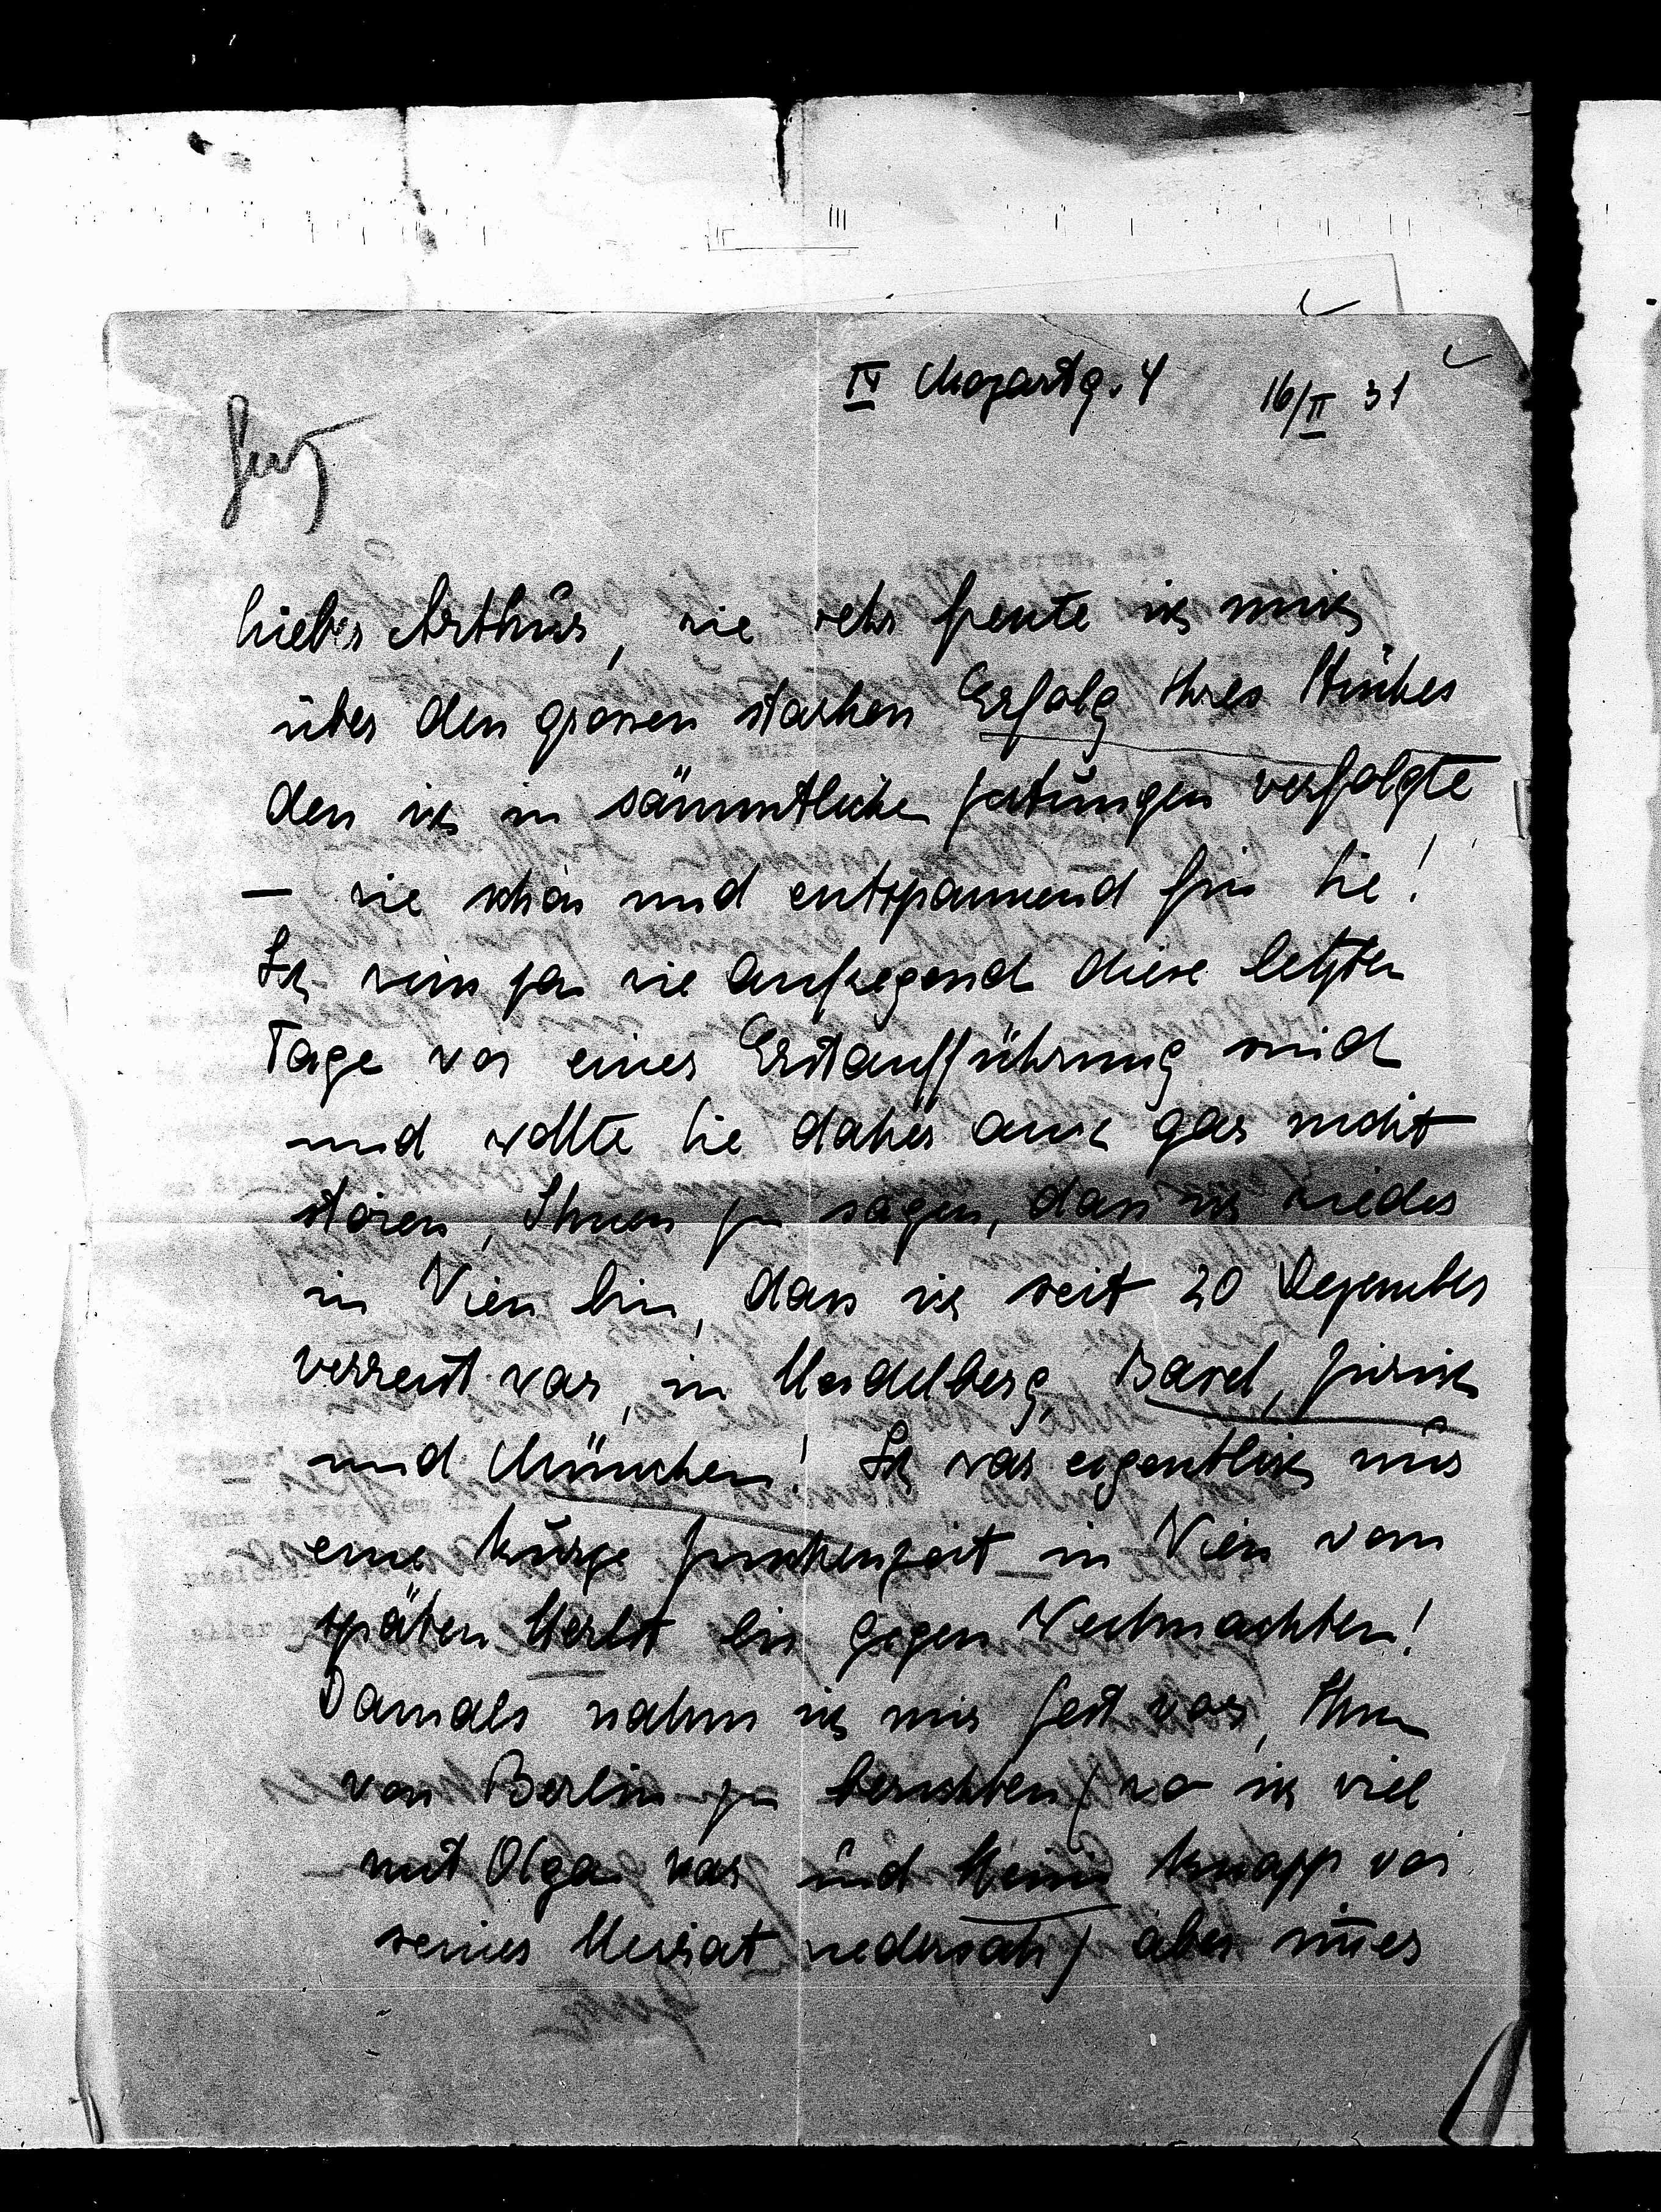 IV Mozartg. 4 16/II 31
Lieber Arthur, wie sehr freute ich mich
über den grossen starken Erfolg Ihres Stückes
den ich in sämmtlichen Zeitungen verfolgte
– wie schön und entspannend für Sie!
Ich weiss ja wie aufregend diese letzten
Tage vor einer Erstaufführung sind
und wollte Sie daher auch gar nicht
stören, Ihnen zu sagen, dass ich wieder
in Wien bin, dass ich seit 20 Dezember
verreist war, in Heidelberg, Basel, Zürich
und München! Ich war eigentlich nur
eine kurze Zwischenzeit in Wien vom
späten Herbst bis gegen Weihnachten!
Damals nahm ich mir fest vor, Ihnen
von Berlin zu berichten (wo ich viel
mit Olga war und Heini knapp vor
seiner Heirat wiedersah) aber immer